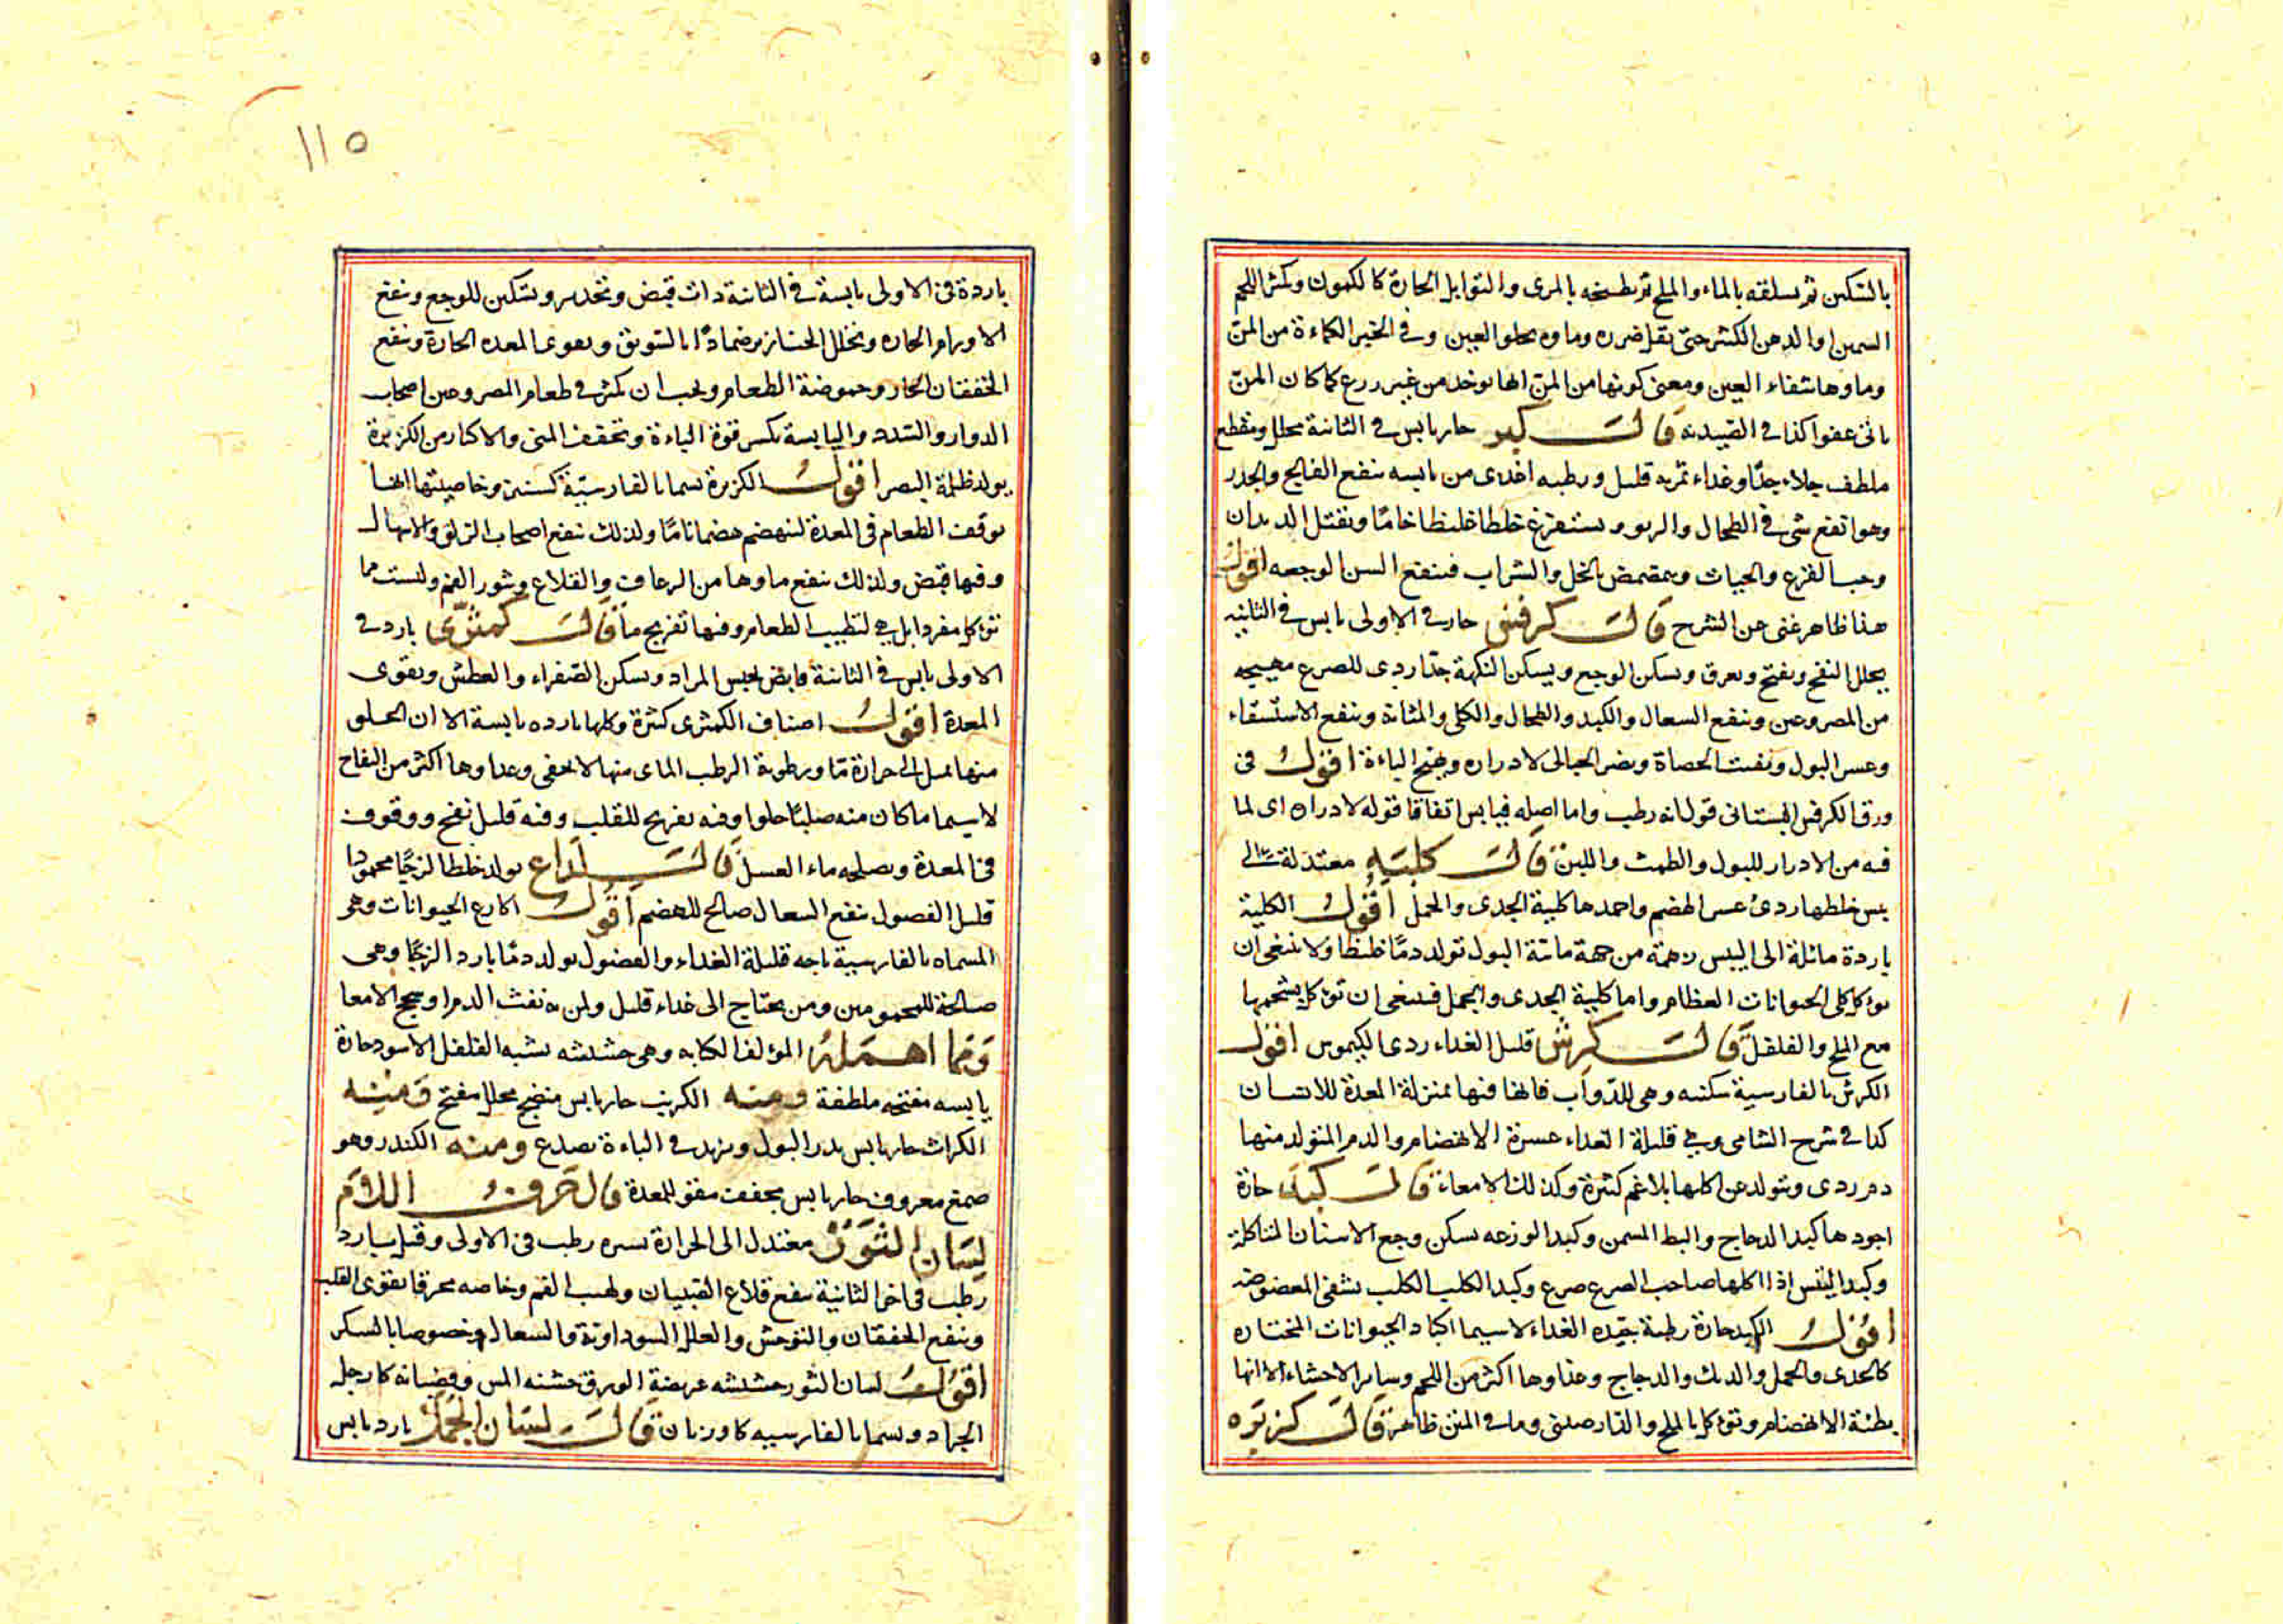 بالسكين ثم يسلقه بالماء والملح ثم يطبخه بالمرى والتوابل الحارة كالكمون ويكثر اللحم
السمين او الدهن الكثير حتى يقل ضرره وماوه يجلو العين وفي الخبر الكماءة من المن
وماوها شفاء العين ومعنى كونها من المن انها توخد من غير زرع كما كان المن
ياتى عفوا كذا في الصيدنه قال كبر حار يابس في الثانية محلل ومقطع
ملطف جلاء جدا وغذاء ثمره قليل ورطبه اغدى من يابسه ينفع الفالج والخدر
وهو انفع شى في الطحال والربو ويستفرغ خلطا غليظا خاما ويقتل الديدان
وحب القرع والحيات ويمضمض بالخل والشراب فينفع السن الوجعه اقول
هذا ظاهر غنى عن الشرح قال كرفس حار في الاولى يابس في الثانيه
يحلل النفخ ويفتح ويعرق ويسكن الوجع ويسكن النكهة جدا ردى للصرع مهيجه
من المصروعين وينفع السعال والكبد والطحال والكلى والمثانة وينفع الاستسقاء
وعسر البول ويفتت الحصاة ويضر الحبالى لادراره ويهيج الباءة اقول في
ورق الكرفس البستانى قول انه رطب واما اصله فيابس اتفاقا قوله لادراره اى لما
فيه من الادرار للبول والطمث واللبن قال كليته معتدلة الى
يبس خلطها ردئ عسر الهضم واحمدها كلية الجدى والحمل اقول الكلية
باردة مائلة الى اليبس زهمة من جهة مائية البول تولد دما غليظا ولا ينبغى ان
يوكل كلى الحيوانات العظام واما كلية الجدى والحمل فينبغى ان توكل بشحمها
مع الملح والفلفل قال كرش قليل الغداء ردى الكيموس اقول
الكرش بالفارسية سكنبه وهى للدواب فانها فيها بمنزلة المعدة للانسان
كذا في شرح الشامى وهى قليلة الغداء عسرة الانهضام والدم المتولد منها
دم ردى ويتولد عن اكلها بلاغم كثيرة وكذلك الامعاء قال كبد حارة
اجودها كبد الدجاج والبط المسمن وكبد الوزغه يسكن وجع الاسنان المتاكلة
وكبد التيس اذا اكلها صاحب الصرع صرع وكبد الكلب الكلب يشفى المعضوض
اقول الكبد حارة رطبة جيده الغداء لاسيما اكباد الحيوانات المختاره
كالجدى والحمل والديك والدجاج وغذاوها اكثر من اللحم وساير الاحشاء الا انها
بطيئة الانهضام وتوكل بالملح والدارصينى وما في المتن ظاهر قال كزبره
١١٥
باردة في الاولى يابسة في الثانية ذات قبض وتخدير وتسكين للوجع وينفع
الاورام الحاره وتحلل الخنازير ضمادا بالسويق ويقوى المعده الحارة وينفع
الخفقان الحار وحموضة الطعام ويجب ان يكثر في طعام المصروعين اصحاب
الدوار والسدد واليابسة يكسر قوة الباءة وتجفف المنى والاكثار من الكزبرة
يولد ظلمة البصر اقول الكزبرة يسما بالفارسية كشنيز وخاصيتها انها
توقف الطعام في المعدة لينهضم هضما تاما ولذلك ينفع اصحاب الزلق والاسهال
وفيها قبض ولذلك ينفع ماوها من الرعاف والقلاع وبثور الفم وليست مما
توكل مفردا بل هي لتطييب الطعام وفيها تفريح ما قال كمثرى بارد في
الاولى يابس في الثانية قابض يحبس المراد ويسكن الصفراء والعطش ويقوى
المعدة اقول اصناف الكمثرى كثيرة وكلها بارده يابسة الا ان الحلو
منها يميل الى حرارة ما ورطوبة الرطب الماى منها لا يخفى وغداوها اكثر من التفاح
لاسيما ما كان منه صلبا حلوا وفيه تفريح للقلب وفيه قليل نفخ ووقوف
في المعدة ويصلحه ماء العسل قال كراع يولد خلطا لزجا محمودا
قليل الفضول ينفع السعال صالح للهضم اقول اكارع الحيوانات وهى
المسماه بالفارسية پاجه قليلة الغداء والفضول يولد دما باردا لزجا وهى
صالحة للمحمومين ومن يحتاج الى غذاء قليل ولمن به نفث الدم او سحج الامعا
ومما اهمله المولف الكبابه وهى حشيشه يشبه الفلفل الاسود حارة
يابسه مفتحه ملطفة ومنه الكرنب حار يابس منضج محلل مفتح ومنه
الكراث حار يابس يدر البول ويزيد في الباءة يصدع ومنه الكندر وهو
صمغ معروف حار يابس مجفف مقو للمعدة قال حرف اللام
لسان الثور معتدل الى الحرارة يسيره رطب في الاولى وقيل بارد
رطب في اخر الثانية ينفع قلاع الصبيان ولهيب الفم وخاصه محرقا يقوى القلب
وينفع الخفقان والتوحش والعلل السوداوية والسعال وخصوصا بالسكر
اقول لسان الثور حشيشه عريضة الورق خشنه المس وقضبانه كارجل
الجراد ويسما بالفارسيه كاوزبان قال لسان الحمل بارد يابس